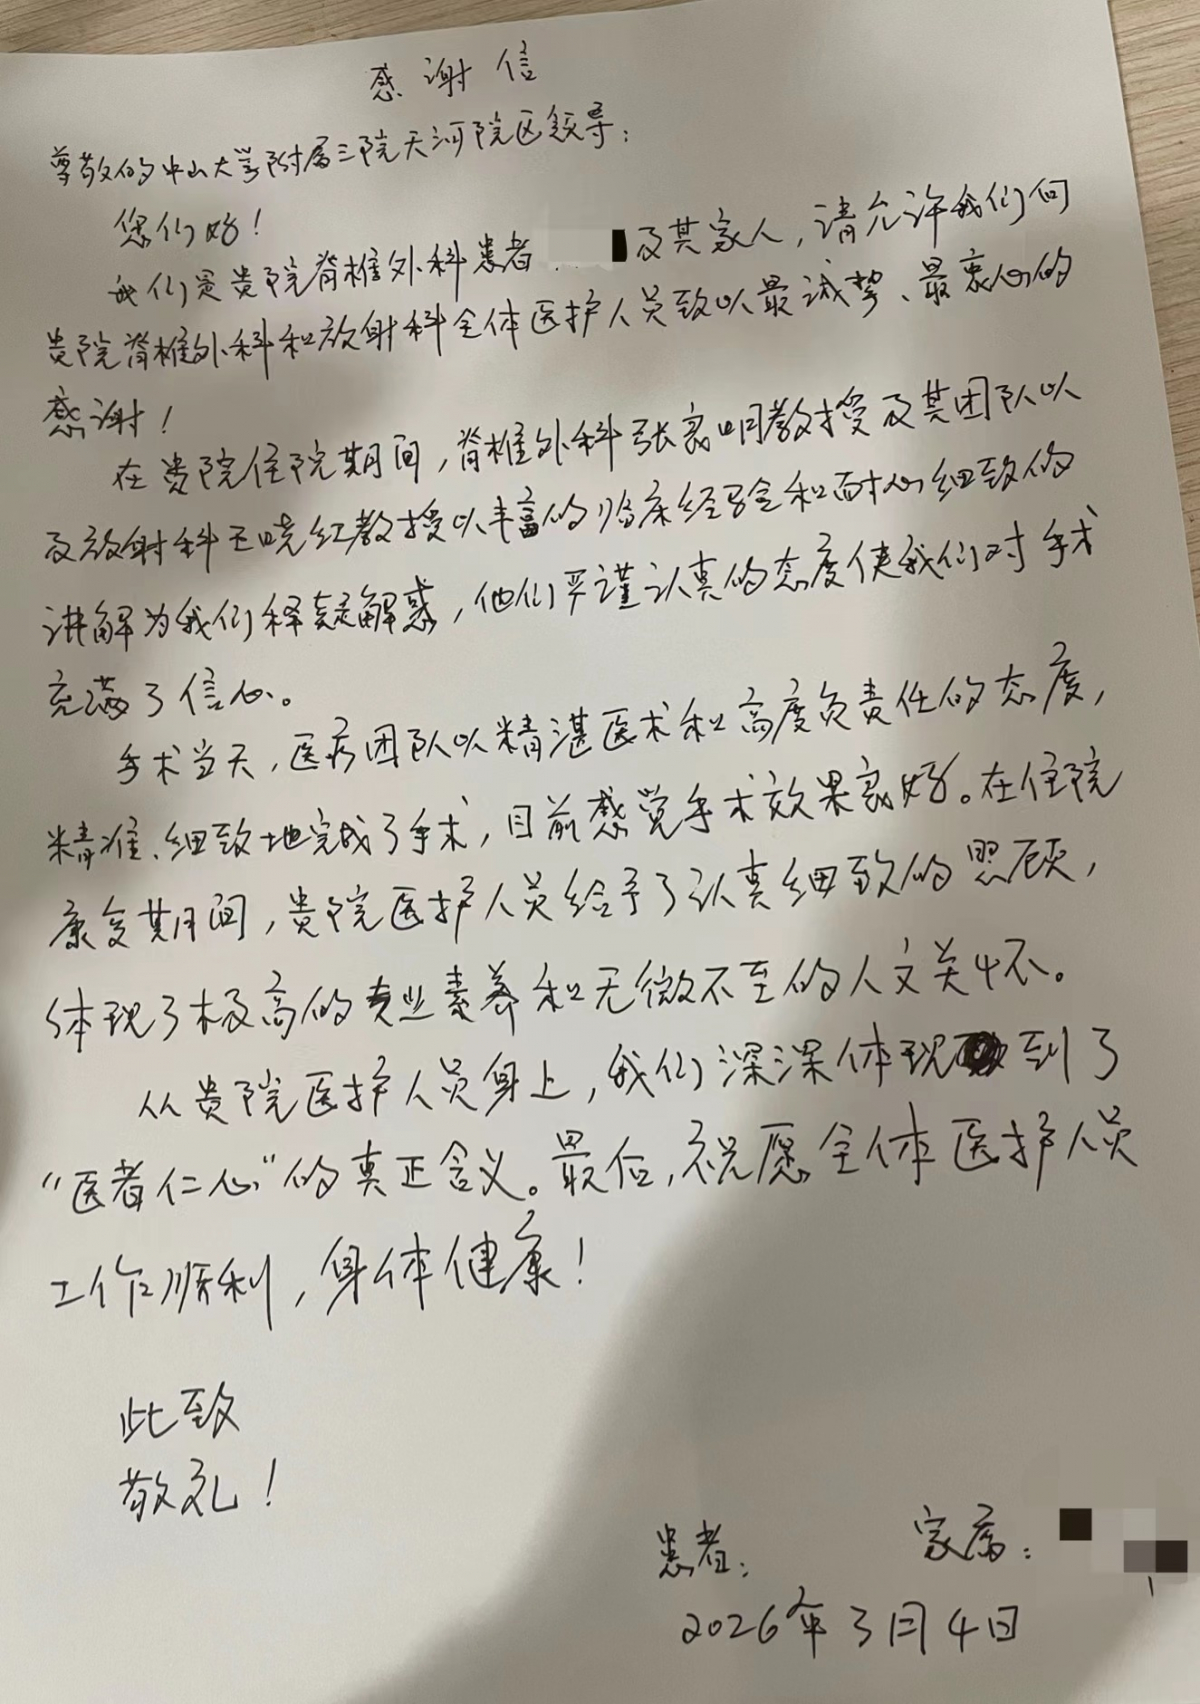 感谢信
尊敬的中山大学附属三院天河院区领导：
您们好！
我们是贵院脊椎外科患者 及其家人，请允许我们向
贵院脊椎外科和放射科全体医护人员致以最诚挚、最衷心的
感谢！
在贵院住院期间，脊椎外科张良明教授及其团队以
及放射科王晓红教授以丰富的临床经验和耐心细致的
讲解为我们释疑解惑，他们严谨认真的态度使我们对手术
充满了信心。
手术当天，医疗团队以精湛医术和高度负责任的态度，
精准、细致地完成了手术，目前感觉手术效果良好。在住院
康复期间，贵院医护人员给予了认真细致的照顾，
体现了极高的专业素养和无微不至的人文关怀。
从贵院医护人员身上，我们深深体现到了
“医者仁心”的真正含义。最后，祝愿全体医护人员
工作顺利，身体健康！
此致
敬礼！
患者： 家属：
2026年3月4日